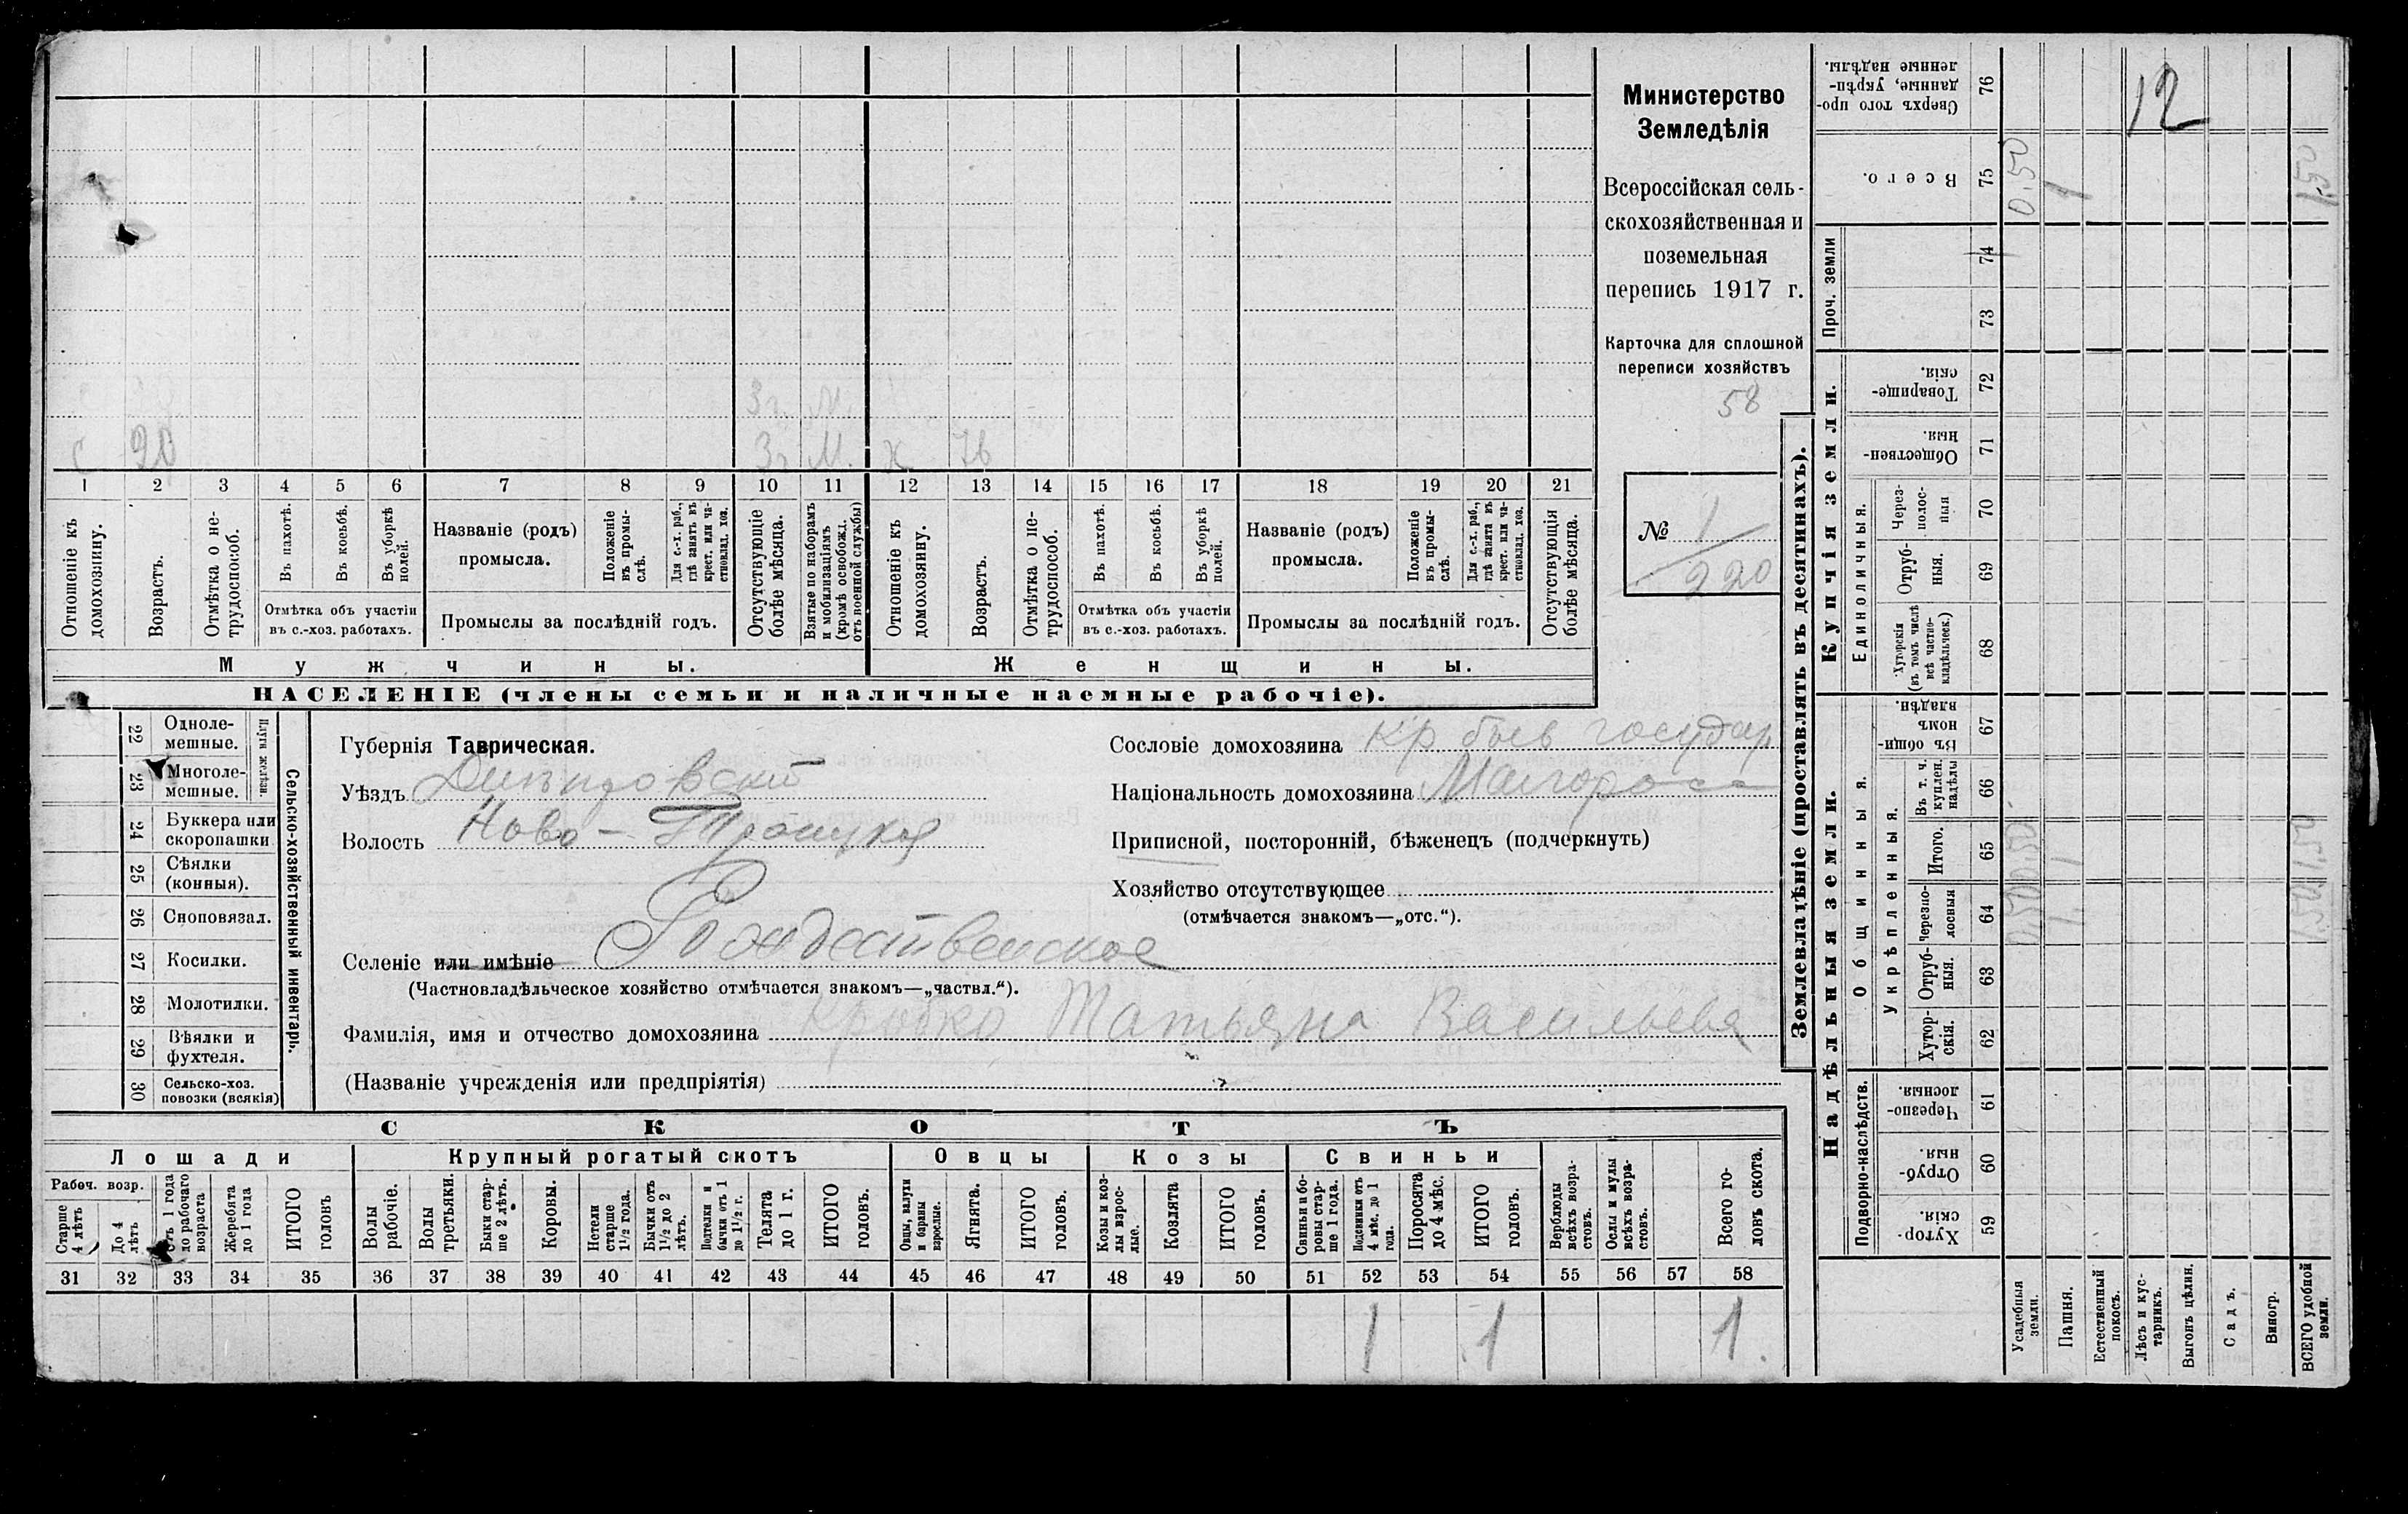 Министерство
Земледѣлія
Всероссійская сель-
скохозяйственная и
поземельная
перепись 1917 г.
Карточка для сплошной
переписи хозяйствъ
58
№ 1/220
3 г. М.
с 20 3 г М. х 76
1 2 3 4 5 6 7 8 9 10 11 12 13 14 15 16 17 18 19 20 21
Отношеніе къ домохозяину.
Возрастъ.
Отмѣтка о не-трудоспособ.
Въ пахотѣ.
Въ косьбѣ.
Въ уборкѣ полей.
Отмѣтка объ участіи
въ с.-хоз. работахъ.
Названіе (родъ)
промысла.
Положеніе въ промы-слѣ.
Для с.-х. раб., гдѣ занятъ въ крест. или ча-стновлад. хоз.
Промыслы за послѣдній годъ.
Отсутствующіе болѣе мѣсяца.
Взятые по наборамъ и мобилизаціямъ (кромѣ освобожд. отъ военной службы)
Отношеніе къ домохозяину.
Возрастъ.
Отмѣтка о не-трудоспособ.
Въ пахотѣ.
Въ косьбѣ.
Въ уборкѣ полей.
Отмѣтка объ участіи
въ с.-хоз. работахъ.
Названіе (родъ)
промысла.
Положеніе въ промы-слѣ.
Для с.-х. раб., гдѣ занята въ крест. или ча-стновлад. хоз.
Промыслы за послѣдній годъ.
Отсутствующія болѣе мѣсяца.
Мужчины.
Женщины.
НАСЕЛЕНІЕ (члены семьи и наличные наемные рабочіе).
Сельско-хозяйственный инвентарь.
Плуги желѣзн.
22 Одноле-мешные.
23 Многоле-мешные.
24 Буккера или скоропашки
25 Сѣялки (конныя).
26 Сноповязал.
27 Косилки.
28 Молотилки.
29 Вѣялки и фухтеля.
30 Сельско-хоз. повозки (всякія)
Губернія Таврическая.
Уѣздъ
Волость Ново-Троицкая
Селеніе или имѣніе Рождественское
(Частновладѣльческое хозяйство отмѣчается знакомъ—„частвл.“).
Фамилія, имя и отчество домохозяина Татьяна Васильева
(Названіе учрежденія или предпріятія)
Сословіе домохозяина кр быв государ
Національность домохозяина Малоросс
Приписной, посторонній, бѣженецъ (подчеркнуть)
Хозяйство отсутствующее
(отмѣчается знакомъ—„отс.“).
СКОТЪ
Лошади
Крупный рогатый скотъ
Овцы
Козы
Свиньи
Рабоч. возр.
Старше 4 лѣтъ
До 4 лѣтъ
Отъ 1 года до рабочаго возраста
Жеребята до 1 года
ИТОГО головъ
Волы рабочіе.
Волы третьяки.
Быки стар-ше 2 лѣтъ.
Коровы.
Нетели старше 1½ года.
Бычки отъ 1½ до 2 лѣтъ.
Подтелки и бычки отъ 1 до 1½ г.
Телята до 1 г.
ИТОГО головъ.
Овцы, валухи и бараны взрослые.
Ягнята.
ИТОГО головъ.
Козы и коз-лы взрос-лые.
Козлята
ИТОГО головъ.
Свиньи и бо-ровы стар-ше 1 года.
Подсвинки отъ 4 мѣс. до 1 года.
Поросята до 4 мѣс.
ИТОГО головъ.
Верблюды всѣхъ возра-стовъ.
Ослы и мулы всѣхъ возра-стовъ.
Всего го-ловъ скота.
31 32 33 34 35 36 37 38 39 40 41 42 43 44 45 46 47 48 49 50 51 52 53 54 55 56 57 58
1 1 1
Землевладѣніе (проставлять въ десятинахъ).
Надѣльныя земли.
Купчія земли.
Проч. земли
Подворно-наслѣдств.
Общинныя.
Укрѣпленныя.
Единоличныя.
Сверхъ того про-данные, укрѣп-ленные надѣлы. 76 12
Всего. 75 0,50 1 1,50
74
73
Товарище-скія. 72
Обществен-ныя. 71
Через-полос-ныя 70
Отруб-ныя. 69
Хуторскія (въ томъ числѣ всѣ частно-владѣльческ.) 68
Въ общи-номъ владѣн. 67
Въ т. ч. куплен. надѣлы 66
Итого. 65 0,50 1 1,50
Черезпо-лосныя 64 0,50 1 1,50
Отруб-ныя. 63
Хутор-скія. 62
Черезпо-лосныя. 61
Отруб-ныя. 60
Хутор-скія. 59
Усадебныя земли.
Пашня.
Естественный покосъ.
Лѣсъ и кус-тарникъ.
Выгонъ цѣлин.
Садъ.
Виногр.
ВСЕГО удобной земли.